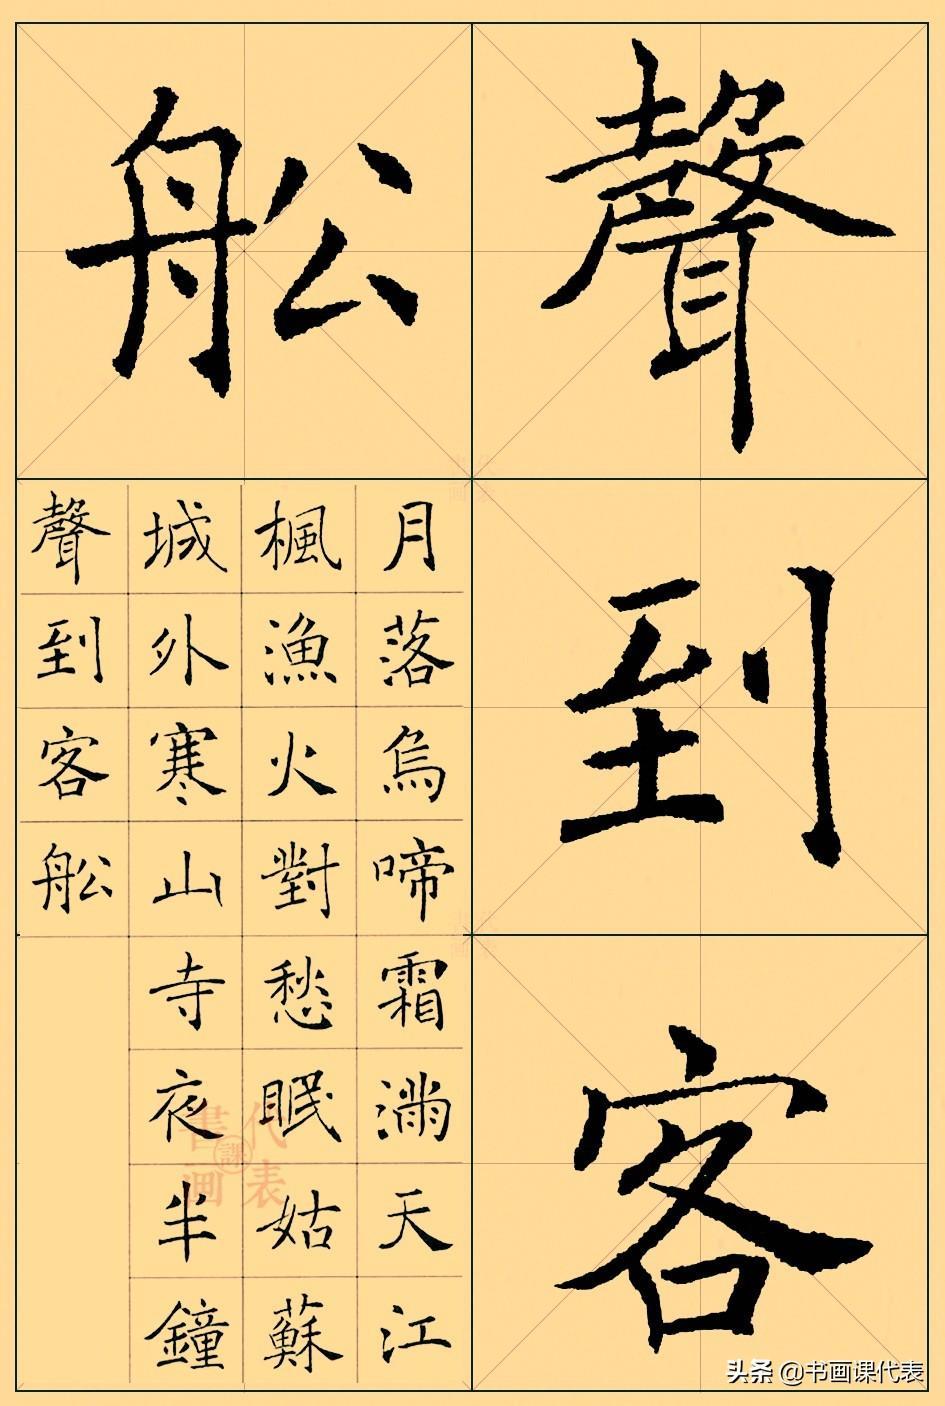 聲
到
客
舩
月落烏啼霜滿天江
楓漁火對愁眠姑蘇
城外寒山寺夜半鐘
聲到客舩
書画課代表
头条 @书画课代表